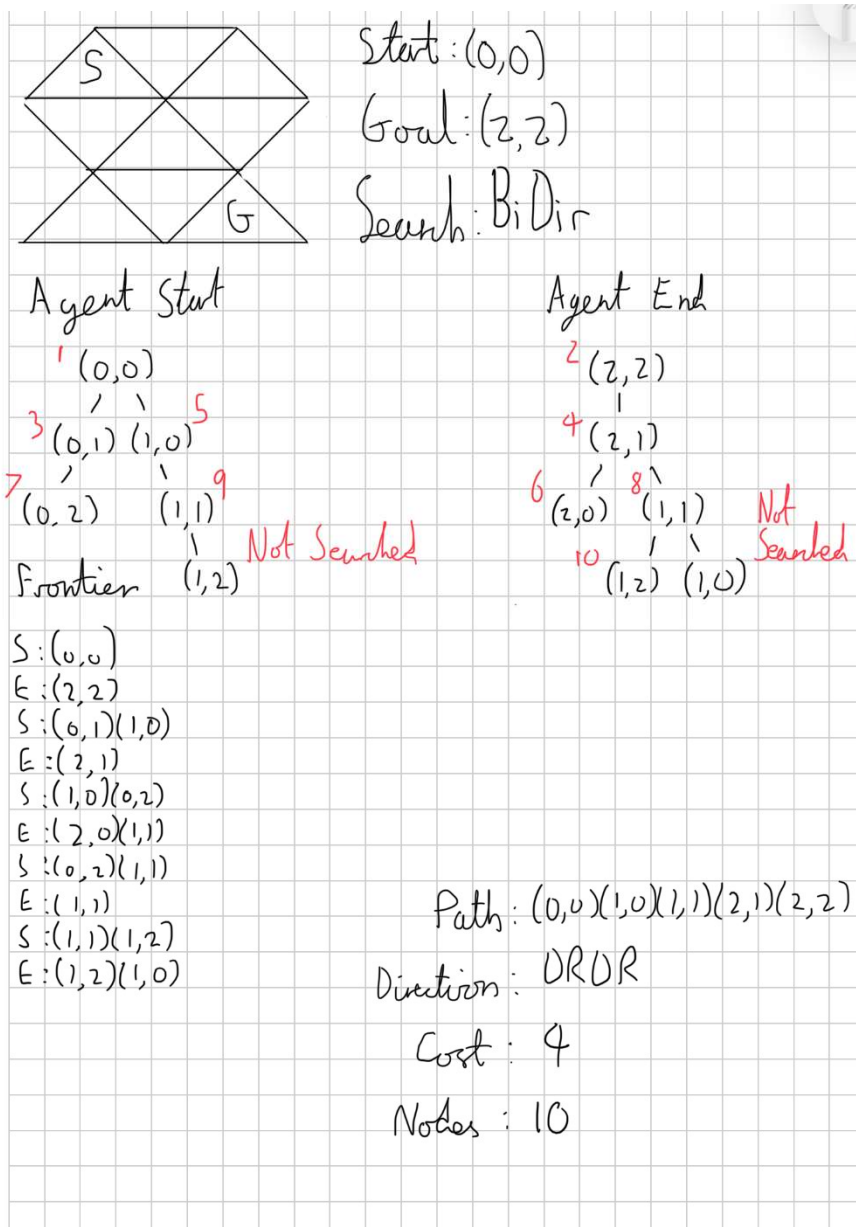 S
G
Start:(0,0)
Goal:(2,2)
Search:BiDir
Agent Start
1 (0,0)
3 (0,1) (1,0) 5
7 (0,2) (1,1) 9
Not Searched
(1,2)
Agent End
2 (2,2)
4 (2,1)
6 (2,0) 8 (1,1)
Not
Searched
10 (1,2) (1,0)
Frontier
S:(0,0)
E:(2,2)
S:(0,1)(1,0)
E:(2,1)
S:(1,0)(0,2)
E:(2,0)(1,1)
S:(0,2)(1,1)
E:(1,1)
S:(1,1)(1,2)
E:(1,2)(1,0)
Path: (0,0)(1,0)(1,1)(2,1)(2,2)
Direction: DRDR
Cost: 4
Nodes: 10